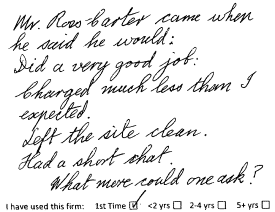 Mr. Ross Carter came when
he said he would:
Did a very good job:
Charged much less than I
expected.
Left the site clean.
Had a short chat.
What more could one ask?
I have used this firm: 1st Time ☑ <2 yrs ☐ 2-4 yrs ☐ 5+ yrs ☐